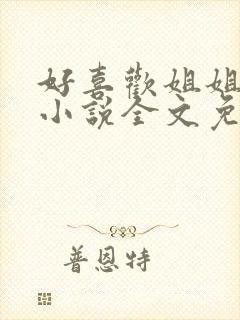 好喜歡姐姐
小説全文免
普恩特